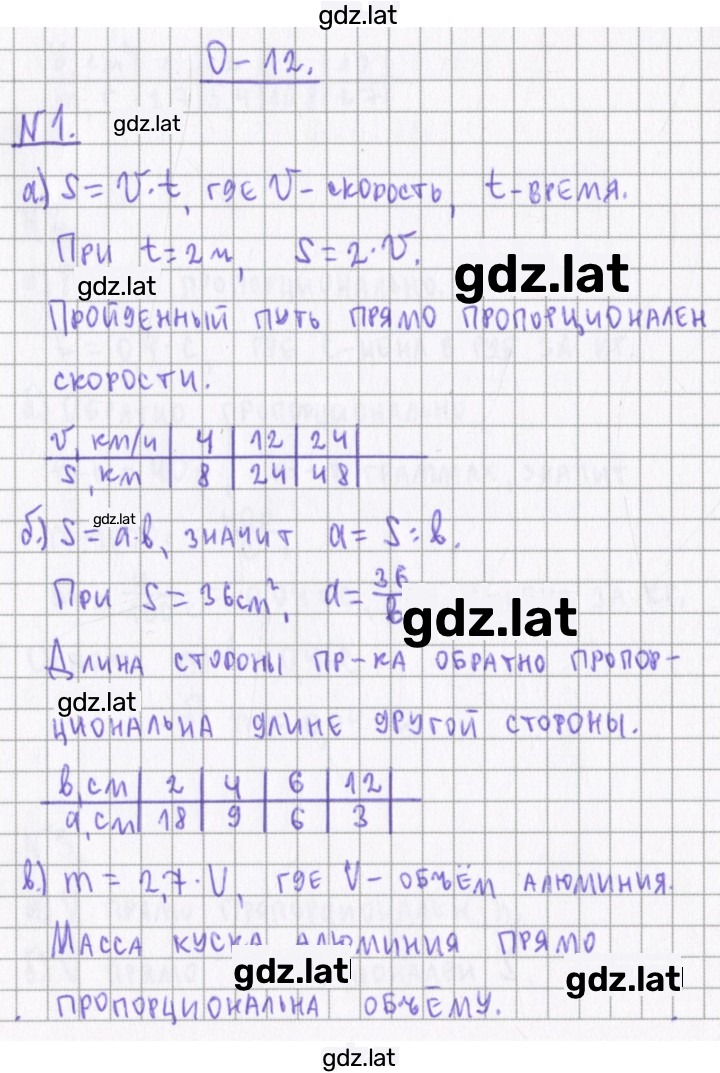 gdz.lat
О-12.
№1.
gdz.lat
а) S = V·t, где V - скорость, t - время.
При t = 2 ч, S = 2·V.
gdz.lat
gdz.lat
Пройденный путь прямо пропорционален
скорости.
V, км/ч | 4 | 12 | 24 |
S, км | 8 | 24 | 48 |
gdz.lat
б) S = a·b, значит a = S : b.
При S = 36 см², a = 36/b
gdz.lat
Длина стороны пр-ка обратно пропор-
gdz.lat
циональна длине другой стороны.
b, см | 2 | 4 | 6 | 12 |
a, см | 18 | 9 | 6 | 3 |
в) m = 2,7·V, где V - объём алюминия.
Масса куска алюминия прямо
gdz.lat
gdz.lat
пропорциональна объёму.
gdz.lat